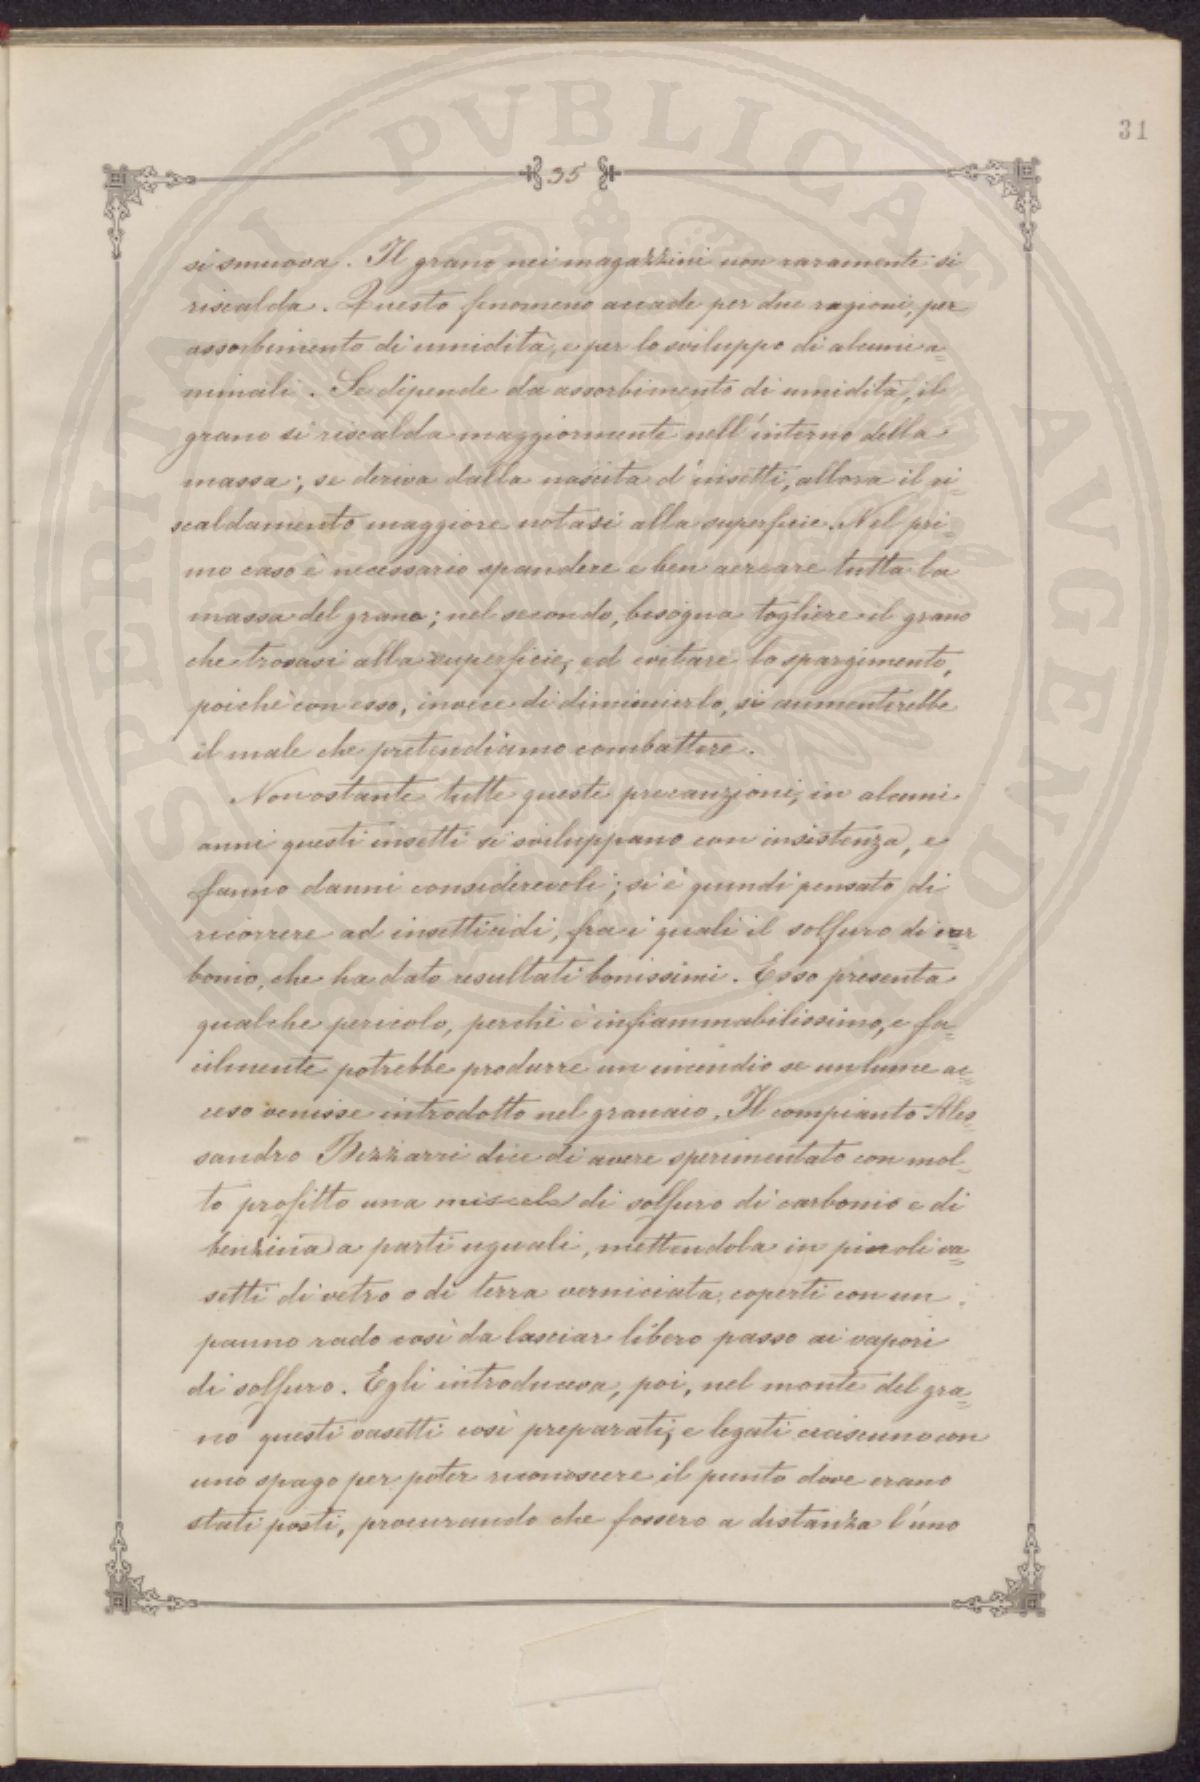 31
35
si smuova. Il grano nei magazzini non raramente si
riscalda. Questo fenomeno accade per due ragioni, per
assorbimento di umidità, e per lo sviluppo di alcuni a=
nimali. Se dipende da assorbimento di umidità, il
grano si riscalda maggiormente nell'interno della
massa; se deriva dalla nascita d'insetti, allora il ri=
scaldamento maggiore notasi alla superficie. Nel pri=
mo caso è necessario spandere e ben aereare tutta la
massa del grano; nel secondo, bisogna togliere il grano
che trovasi alla superficie, ed evitare lo spargimento,
poichè con esso, invece di diminuirlo, si aumenterebbe
il male che pretendiamo combattere.
Nonostante tutte queste precauzioni, in alcuni
anni questi insetti si sviluppano con insistenza, e
fanno danni considerevoli; si è quindi pensato di
ricorrere ad insetticidi, fra i quali il solfuro di car
bonio, che ha dato resultati bonissimi. Esso presenta
qualche pericolo, perchè è infiammabilissimo, e fa=
cilmente potrebbe produrre un incendio se un lume ac=
ceso venisse introdotto nel granaio. Il compianto Ales=
sandro Bizzarri dice di avere sperimentato con mol=
to profitto una miscela di solfuro di carbonio e di
benzina a parti uguali, mettendola in piccoli va=
setti di vetro o di terra verniciata, coperti con un
panno rado così da lasciar libero passo ai vapori
di solfuro. Egli introduceva, poi, nel monte del gra=
no questi vasetti così preparati, e legati ciascuno con
uno spago per poter riconoscere il punto dove erano
stati posti, procurando che fossero a distanza l'uno
PROSPERITATI PVBLICAE AVGENDAE